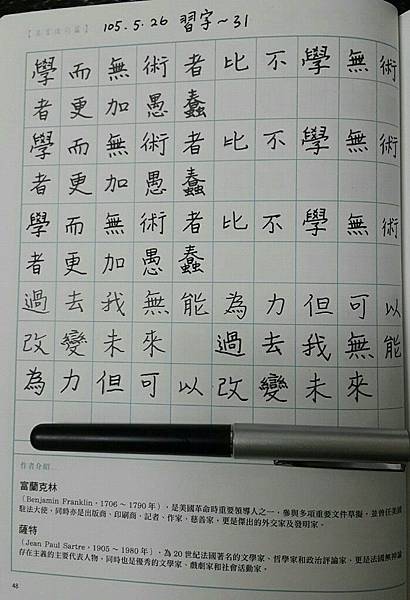 105.5.26 習字~31
學而無術者比不學無術
者更加愚蠢
學而無術者比不學無術
者更加愚蠢
學而無術者比不學無術
者更加愚蠢
過去我無能為力但可以
改變未來 過去我無能
為力但可以改變未來
作者介紹
富蘭克林
(Benjamin Franklin,1706~1790年),是美國革命時重要領導人之一,參與多項重要文件草擬,並曾任美國
駐法大使,同時亦是出版商、印刷商、記者、作家、慈善家,更是傑出的外交家及發明家。
薩特
(Jean Paul Sartre,1905~1980年),為20世紀法國著名的文學家、哲學家和政治評論家,更是法國無神論
存在主義的主要代表人物,同時也是優秀的文學家、戲劇家和社會活動家。
48